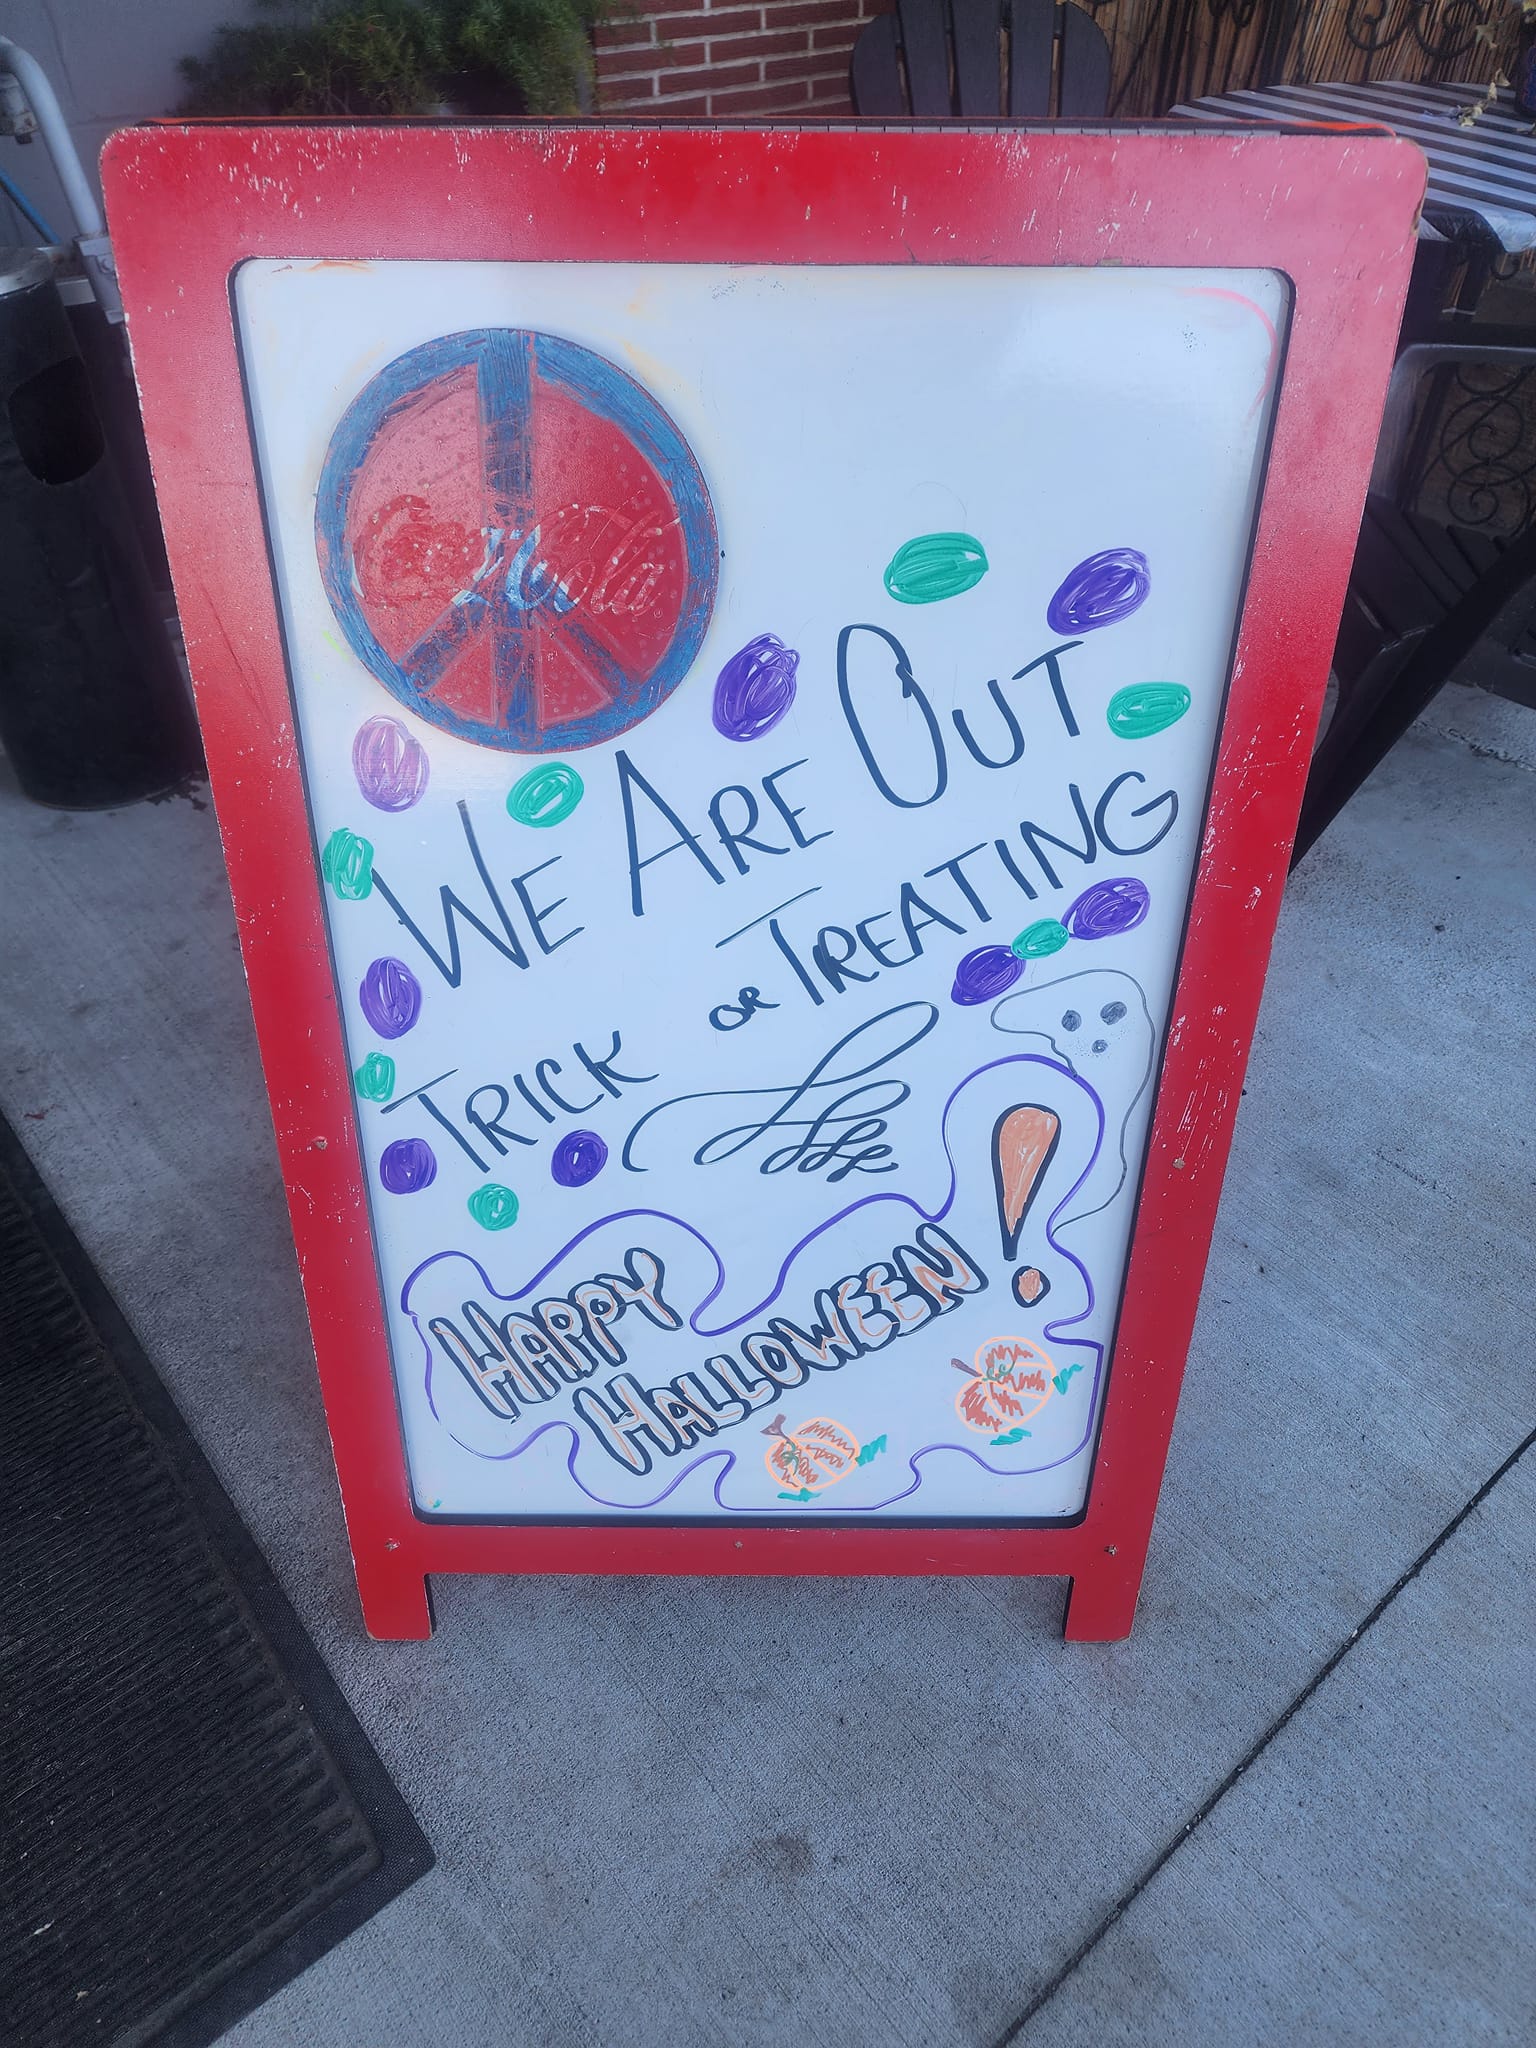 Coca-Cola
WE ARE OUT
TRICK OR TREATING
HAPPY
HALLOWEEN!